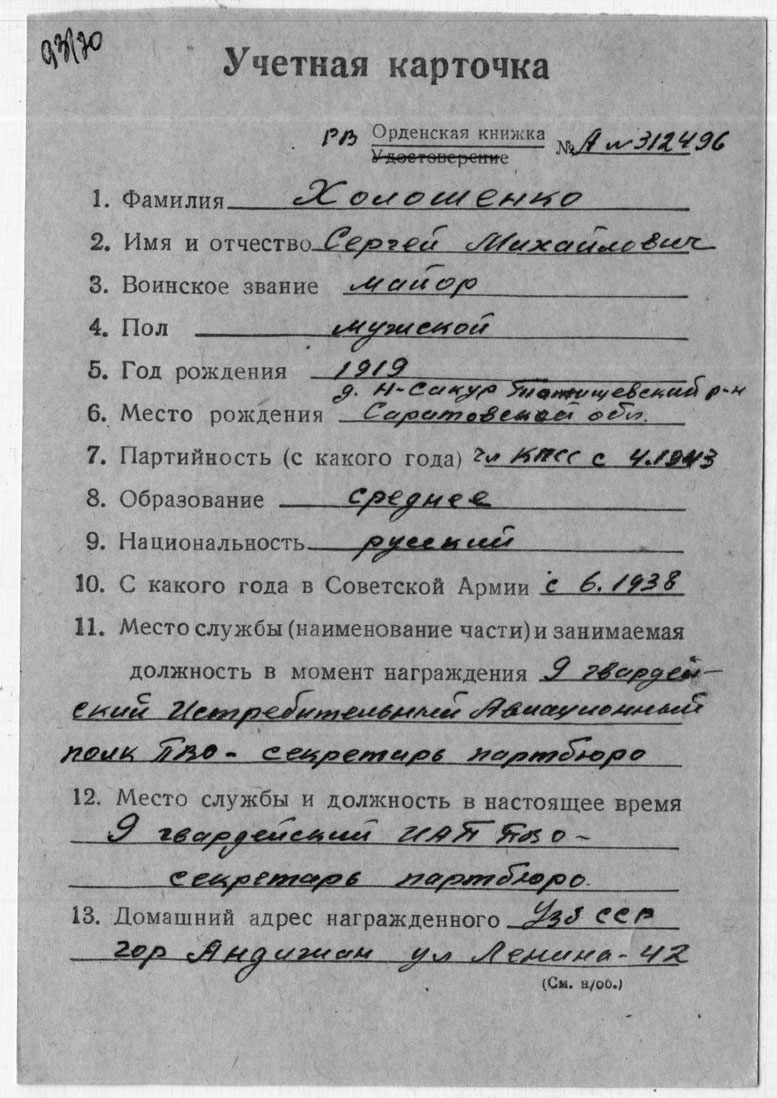 93/70
Учетная карточка
РВ Орденская книжка № А № 312496
Удостоверение
1. Фамилия Холошенко
2. Имя и отчество Сергей Михайлович
3. Воинское звание майор
4. Пол мужской
5. Год рождения 1919
д. Н-Сакур Татищевский р-н
6. Место рождения Саратовской обл.
7. Партийность (с какого года) чл КПСС с 4.1943
8. Образование среднее
9. Национальность русский
10. С какого года в Советской Армии с 6.1938
11. Место службы (наименование части) и занимаемая
должность в момент награждения 9 гвардей-
ский Истребительный Авиационный
полк ПВО - секретарь партбюро
12. Место службы и должность в настоящее время
9 гвардейский ИАП ПВО -
секретарь партбюро.
13. Домашний адрес награжденного Узб ССР
гор Андижан ул Ленина - 42
(См. н/об.)